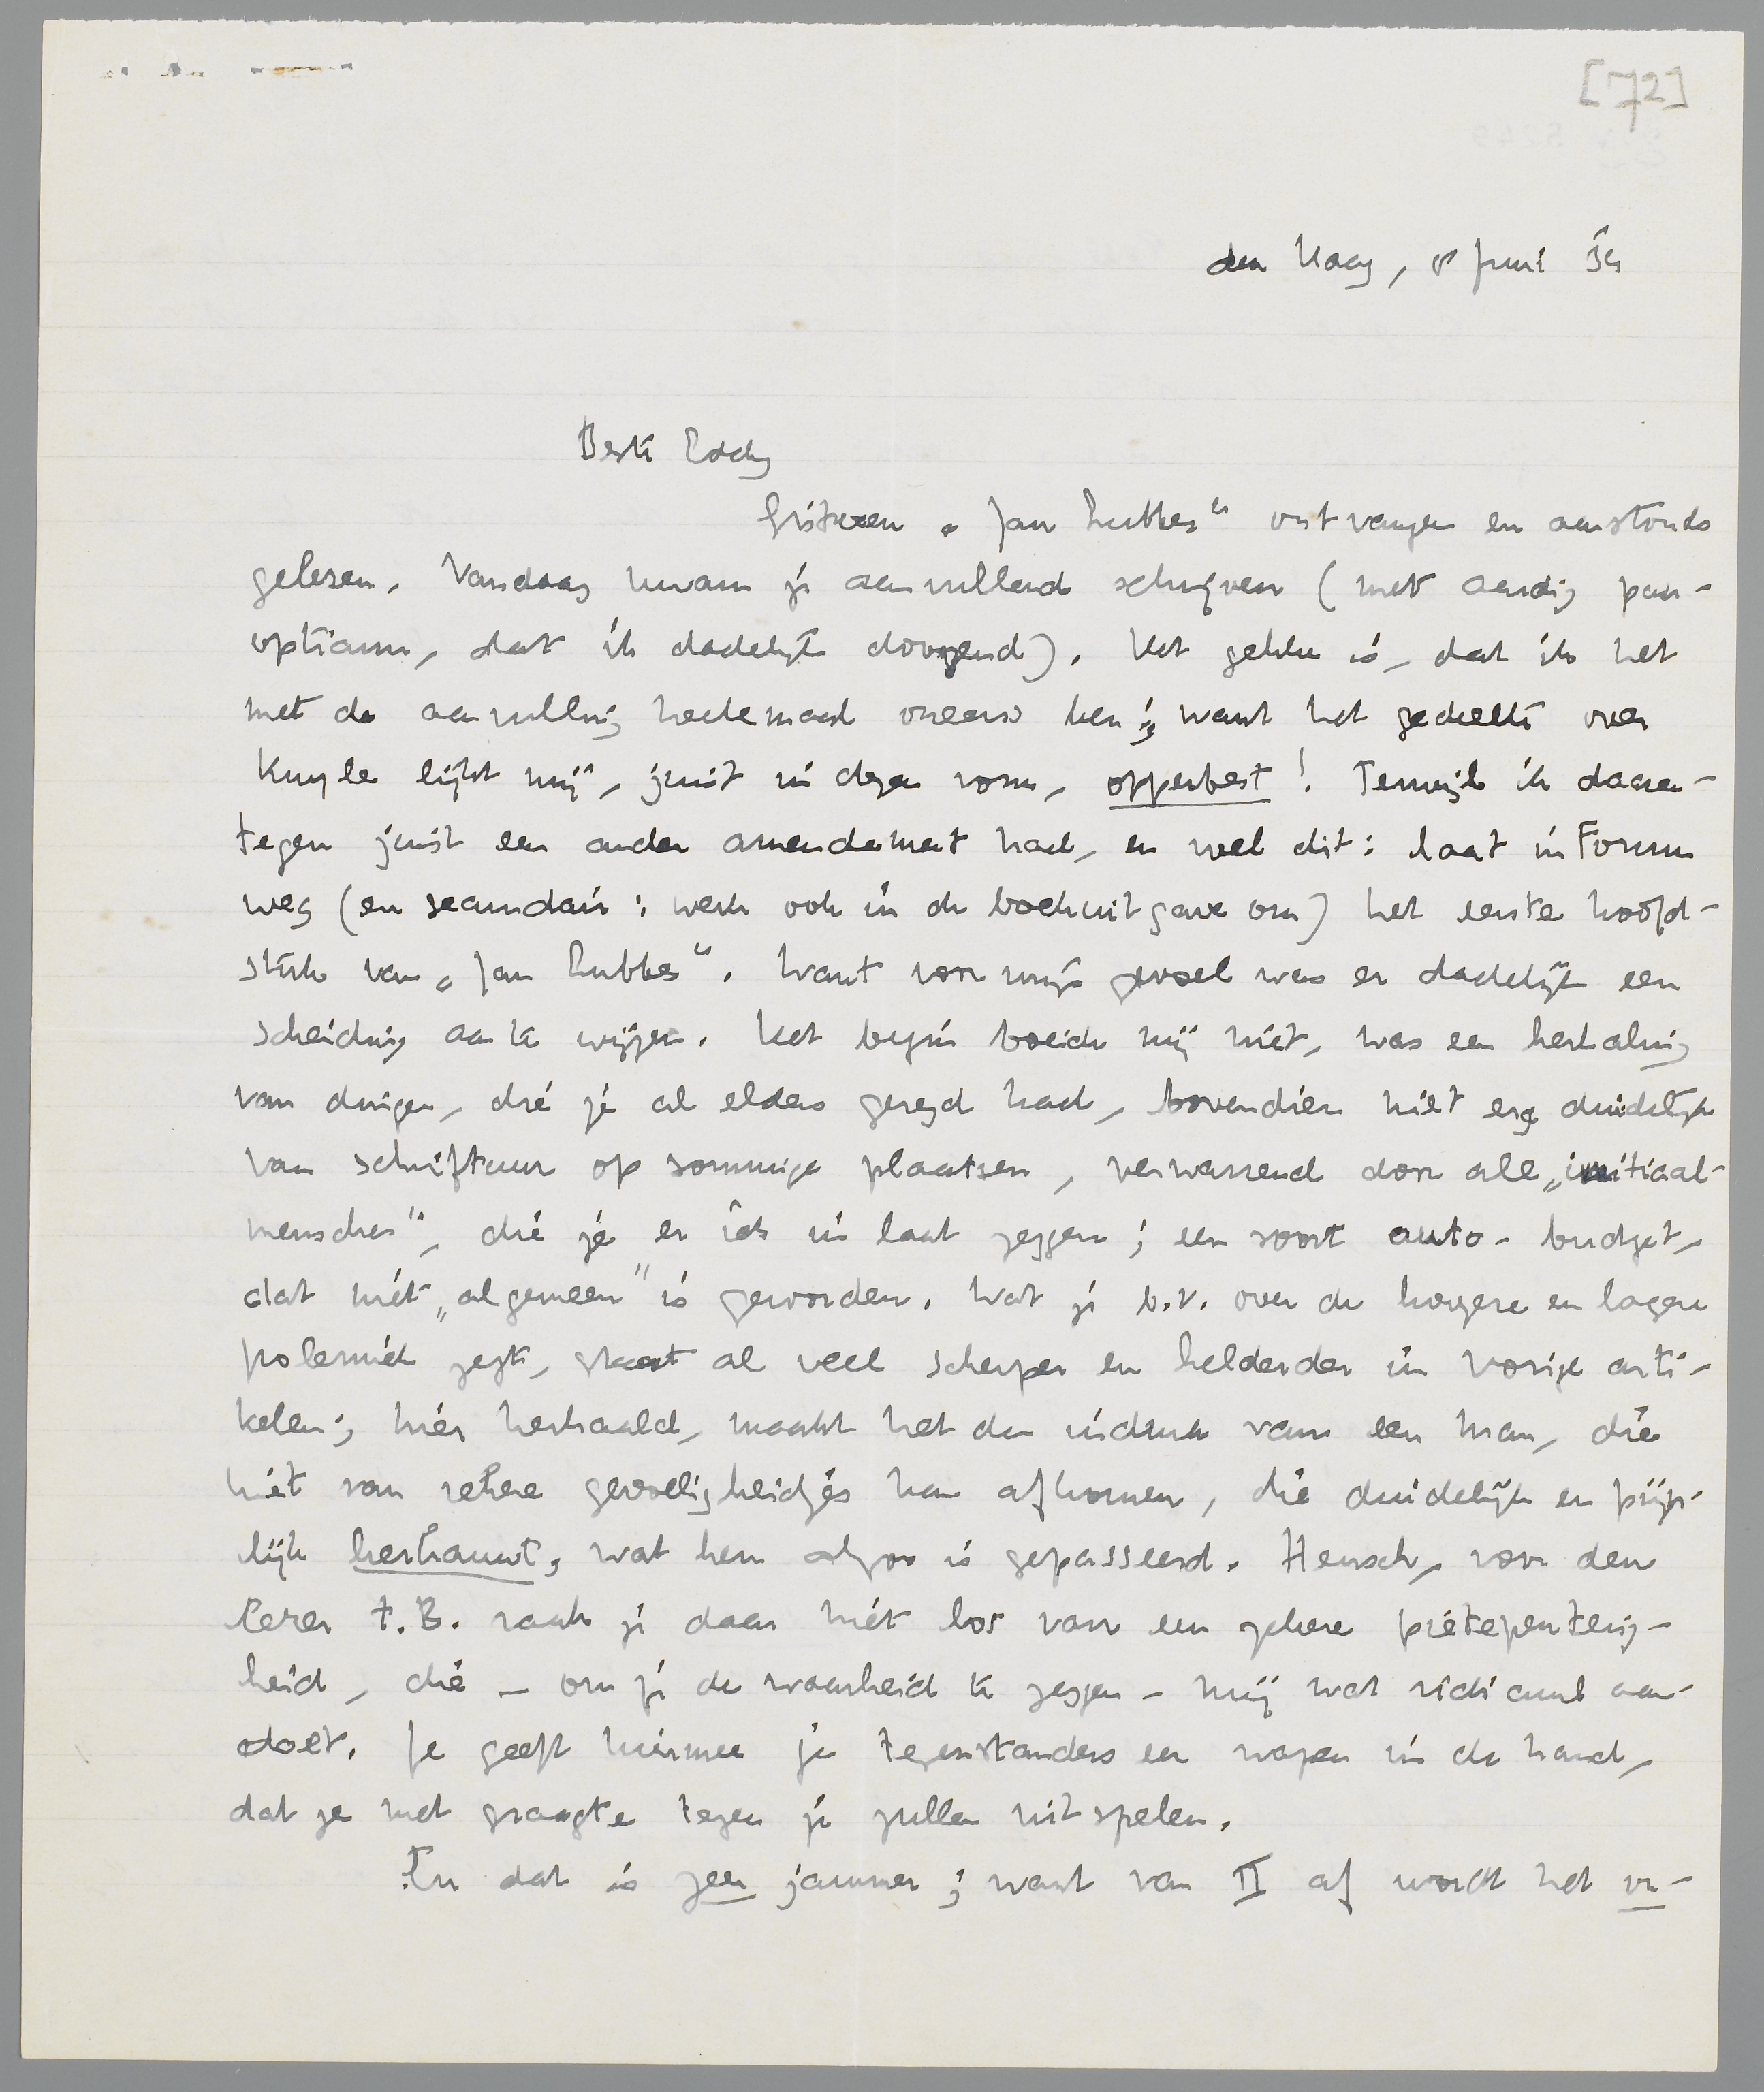 [72]
den Haag, 8 Juni '34
Beste Eddy
Gisteren „Jan Lubbes" ontvangen en aanstonds
gelezen. Vandaag kwam je aanvullend schrijven (met aardig pan-
opticum, dat ik dadelijk doorzend). Het gekke is, dat ik het
met de aanvulling heelemaal oneens ben; want het gedeelte over
Kuyle lijkt mij, juist in dezen vorm, opperbest! Terwijl ik daaren-
tegen juist een ander amendement had, en wel dit: laat in Forum
weg (en secundair: werk ook in de boekuitgave om) het eerste hoofd-
stuk van „Jan Lubbes". Want voor mijn gevoel was er dadelijk een
scheiding aan te wijzen. Het begin boeide mij niet, was een herhaling
van dingen, die je al elders gezegd had, bovendien niet erg duidelijk
van schriftuur op sommige plaatsen, verwarrend door alle „initiaal-
menschen", die je er iets in laat zeggen; een soort auto-budget,
dat niet „algemeen" is geworden. Wat je b.v. over de hoogere en lagere
polemiek zegt, staat al veel scherper en helderder in vorige arti-
kelen; hier herhaald, maakt het den indruk van een man, die
niet van zekere gevoeligheidjes kan afkomen, die duidelijk en pijn-
lijk herkauwt, wat hem alzoo is gepasseerd. Heusch, voor den
lezer t.B. raak je daar niet los van een zekere pietepeuterig-
heid, die – om je de waarheid te zeggen – mij wat ridicuul aan-
doet. Je geeft hiermee je tegenstanders een wapen in de hand,
dat ze met graagte tegen je zullen uitspelen.
En dat is zeer jammer; want van II af wordt het uit-